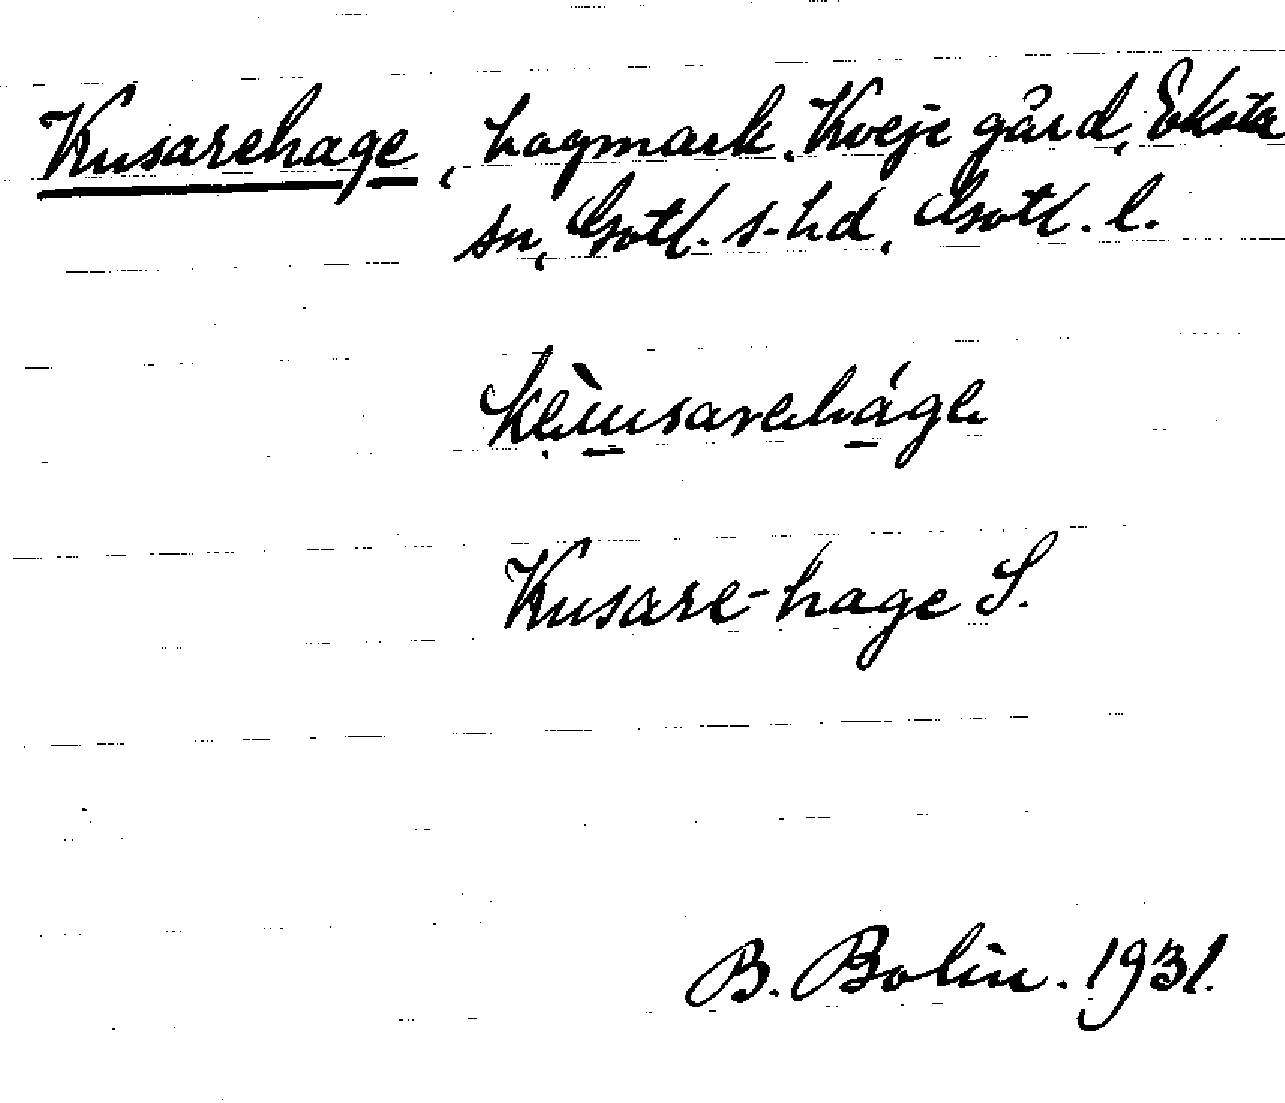 Kusarehage, hagmark, Kveje gård, Eksta
sn, Gotl. s. hd, Gotl. l.
Kusare-hage S.
B. Bolin. 1931.